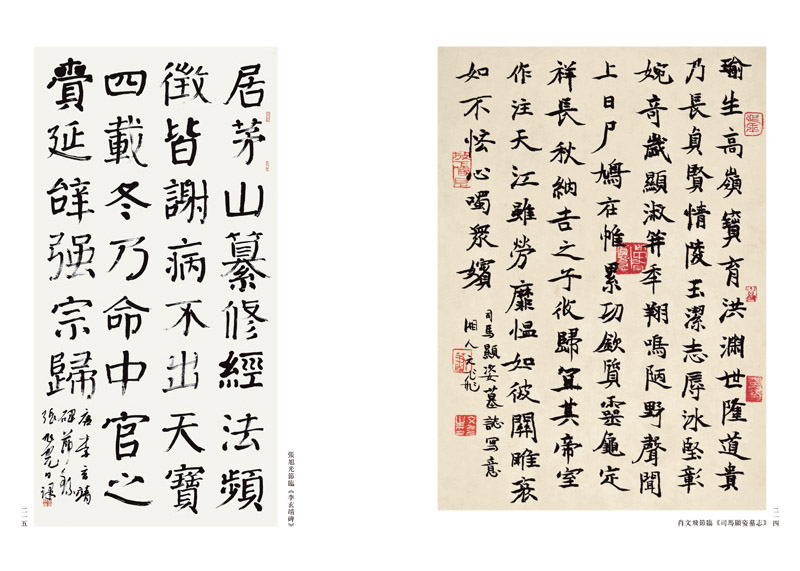 瑜生高嶺寶育洪淵世隆道貴
乃長貞賢情陵玉潔志辱冰堅彰
婉奇歲顯淑笄年翔鳴陋野聲聞
上日尸鳩在惟累功欽質靈龜定
祥長秋納吉之子攸歸宜其帝室
作注天江雖勞靡慍如彼關雎哀
如不恡心噣眾嬪
司馬顯姿墓誌寫意
湘人文飛
肖文飛節臨《司馬顯姿墓志》
二一四
居茅山纂修經法頻
徵皆謝病不出天寶
四載冬乃命中官之
賫延辝强宗歸
唐李玄靖
碑節臨
張旭光日課
張旭光節臨《李玄靖碑》
二一五